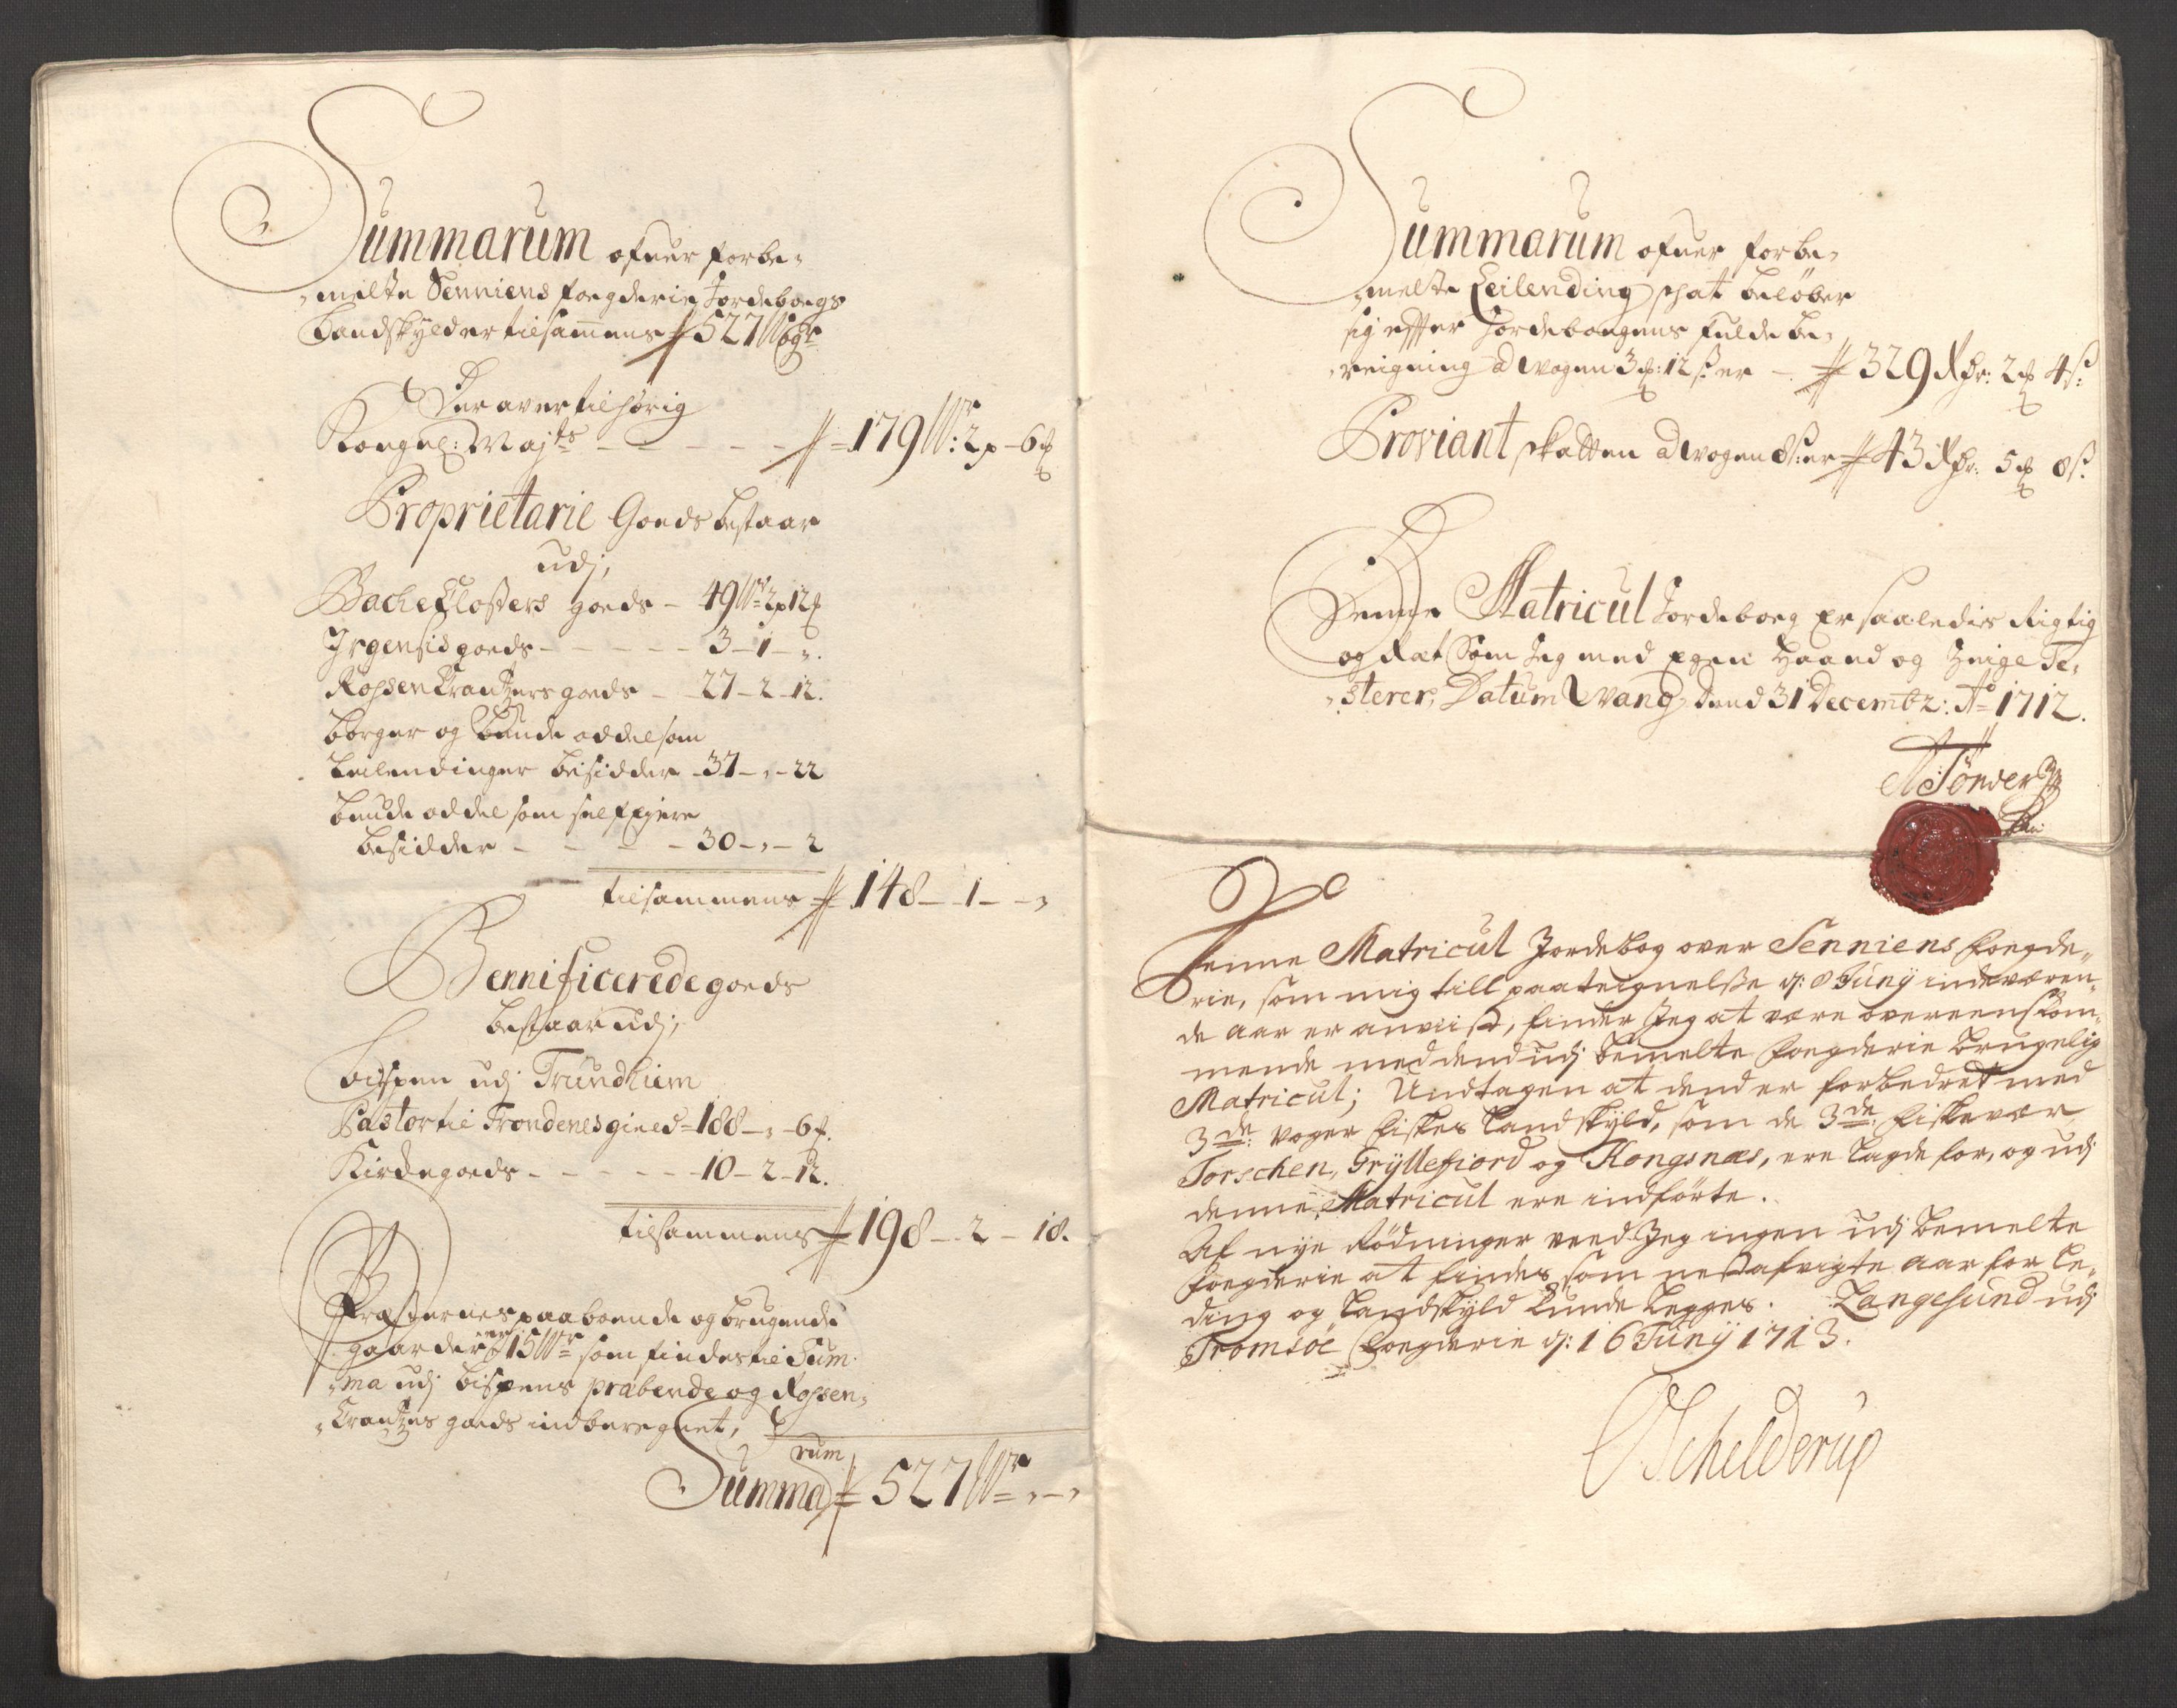 Summarum ofuer forbe,
,melte Senniens fougderie Jordebougs
Landskylder tilsammens 527 Wogr
Der aver tilhørig
Kongel: Mayts - - - - - 179 Wr: 2 p - 6 f
Proprietarie Goeds bestaar
udj,
Backe Closters goeds - 49 Wr 2 p 12 f
Irgensis goeds - - - - - 3 - 1 - „.
Rossenkrantzers goeds - - 27 - 2 - 12.
borger og bunde oddel som
leilendinger besidder - 37 - „ - 22
bunde oddel som self Ejere
besidder - - - - - 30 - „ - 2
tilsammens 148 - 1 - - „
Bennificerede goeds
bestaar udj,
bispen udj Trundhiem
Pastor til Trondenes gield - 188 - „ - 6 f.
Kirchegoeds - - - - - - 10 - 2 - 12.
tilsammens 198 - 2 - 18.
Præsternes paaboende og brugende
gaarder er 15 Wr som findes til Sum
,ma udj bispens præbende og Rossen,
,Krantzes goeds indberegnet,
Summarum 527 Wr „ - „
Summarum ofuer forbe,
,melte Leilending schat beløber
sig effter Jordebougens fulde be,
,reigning a Wogen 3 f: 12 s: er - 329 Rdr: 2 f 4 s:
Proviant skatten a Wogen 8 s: er 43 Rdr: 5 f 8 s:
Denne Matricul Jordeboeg Er saaledis Rigtig
og Ræt Som Jeg med Egen Haand og Zeigl Te,
,sterer, Datum Wang dend 31 Decembr: Ao 1712.
A Tønder
Denne Matricul Jordebog over Senniens foegde„
rie, som mig till paateignelsse d: 8 Juny indeværen„
de aar er anviist, finder Jeg at være overeenskom„
mende med dend udj bemelte foegderie brugelig
Matricul; Undtagen at dend er forbedret med
3de: voger fiskes Landskyld, som de 3de: fiskevær
Torschen, Gryllefiord og Kongsnæs, ere lagde for, og udj
denne Matricul ere indførte.
Af nye Rødninger veed Jeg ingen udj bemelte
foegderie at findes, som nestafvigte aar for le„
ding og Landskyld kunde legges. Langesund udj
Tromsøe foegderie d: 16 Juny 1713.
O Schelderup